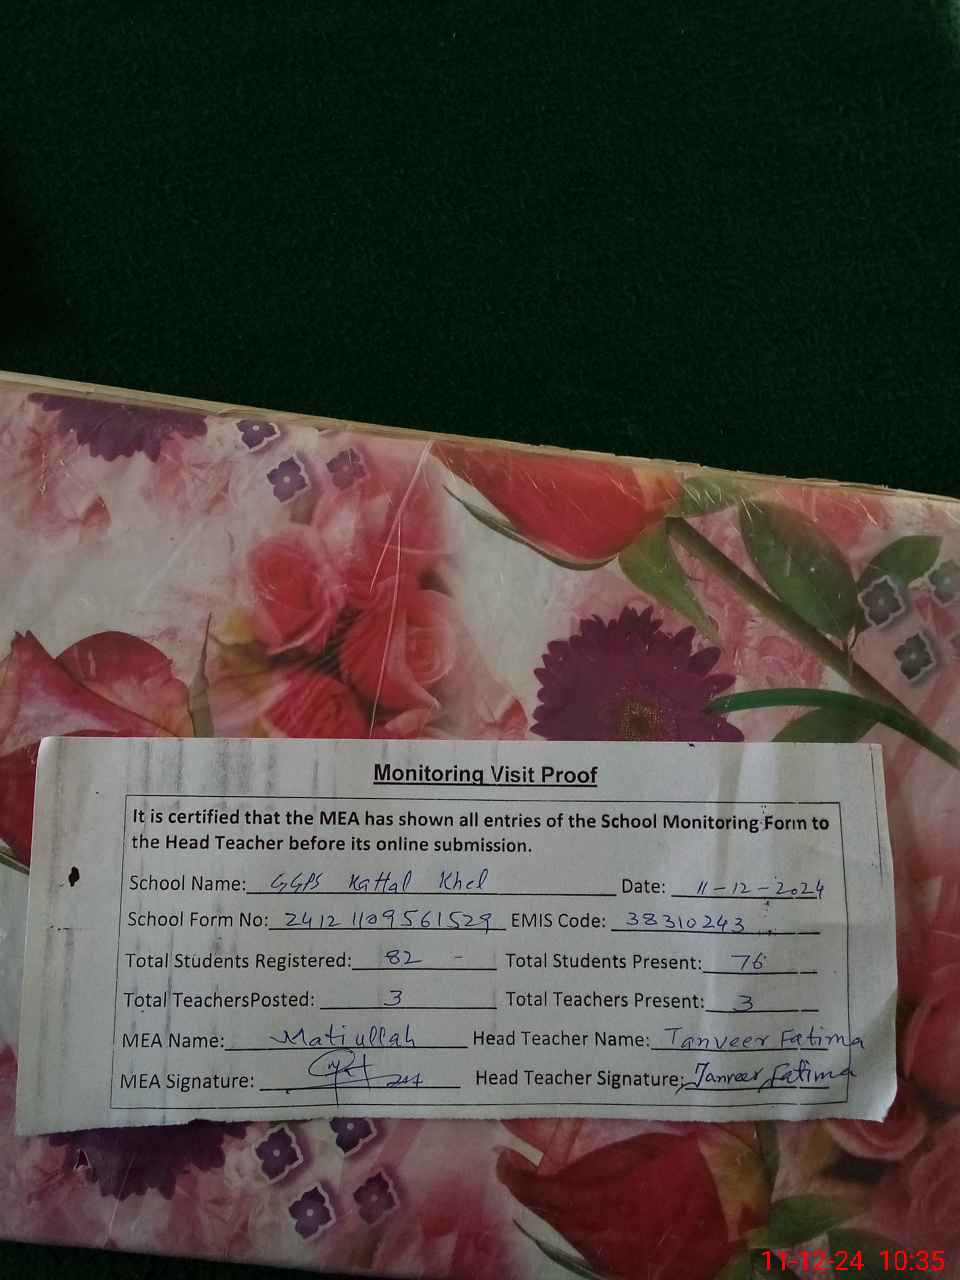 Monitoring Visit Proof
It is certified that the MEA has shown all entries of the School Monitoring Form to
the Head Teacher before its online submission.
School Name: GGPS Kattal Khel Date: 11-12-2024
School Form No: 24121109561529 EMIS Code: 38310243
Total Students Registered: 82 - Total Students Present: 76
Total TeachersPosted: 3 Total Teachers Present: 3
MEA Name: Matiullah Head Teacher Name: Tanveer Fatima
MEA Signature: Head Teacher Signature: Tanveer Fatima
11-12-24 10:35